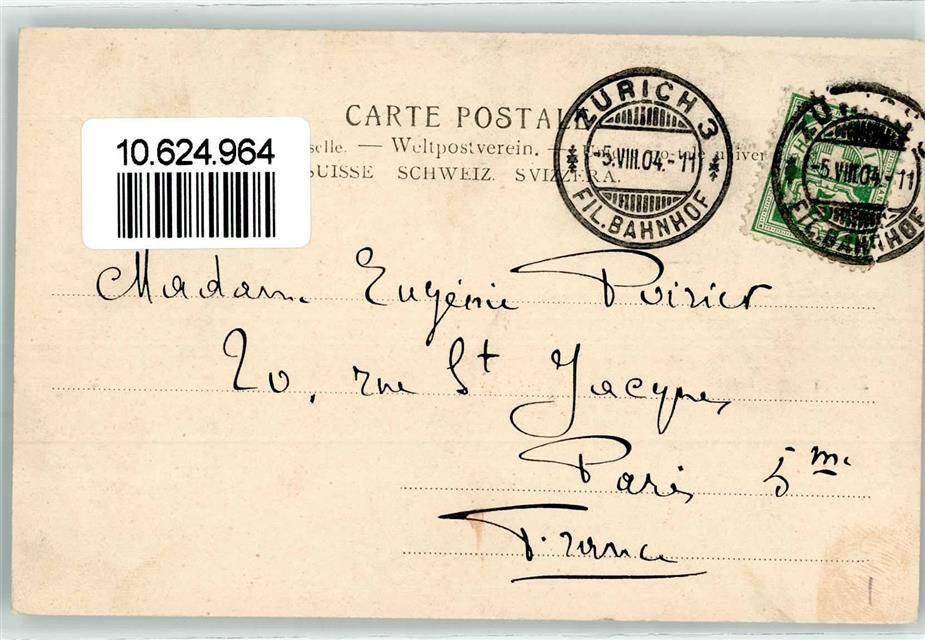 CARTE POSTALE
10.624.964
selle. — Weltpostverein. —
SUISSE SCHWEIZ. SVIZZERA.
ZÜRICH 3
-5.VIII.04.-11
FIL.BAHNHOF
-5.VIII.04.-11
FIL.BAHNHOF
Madame Eugénie Poirier
20, rue St Jacques
Paris 5me
France